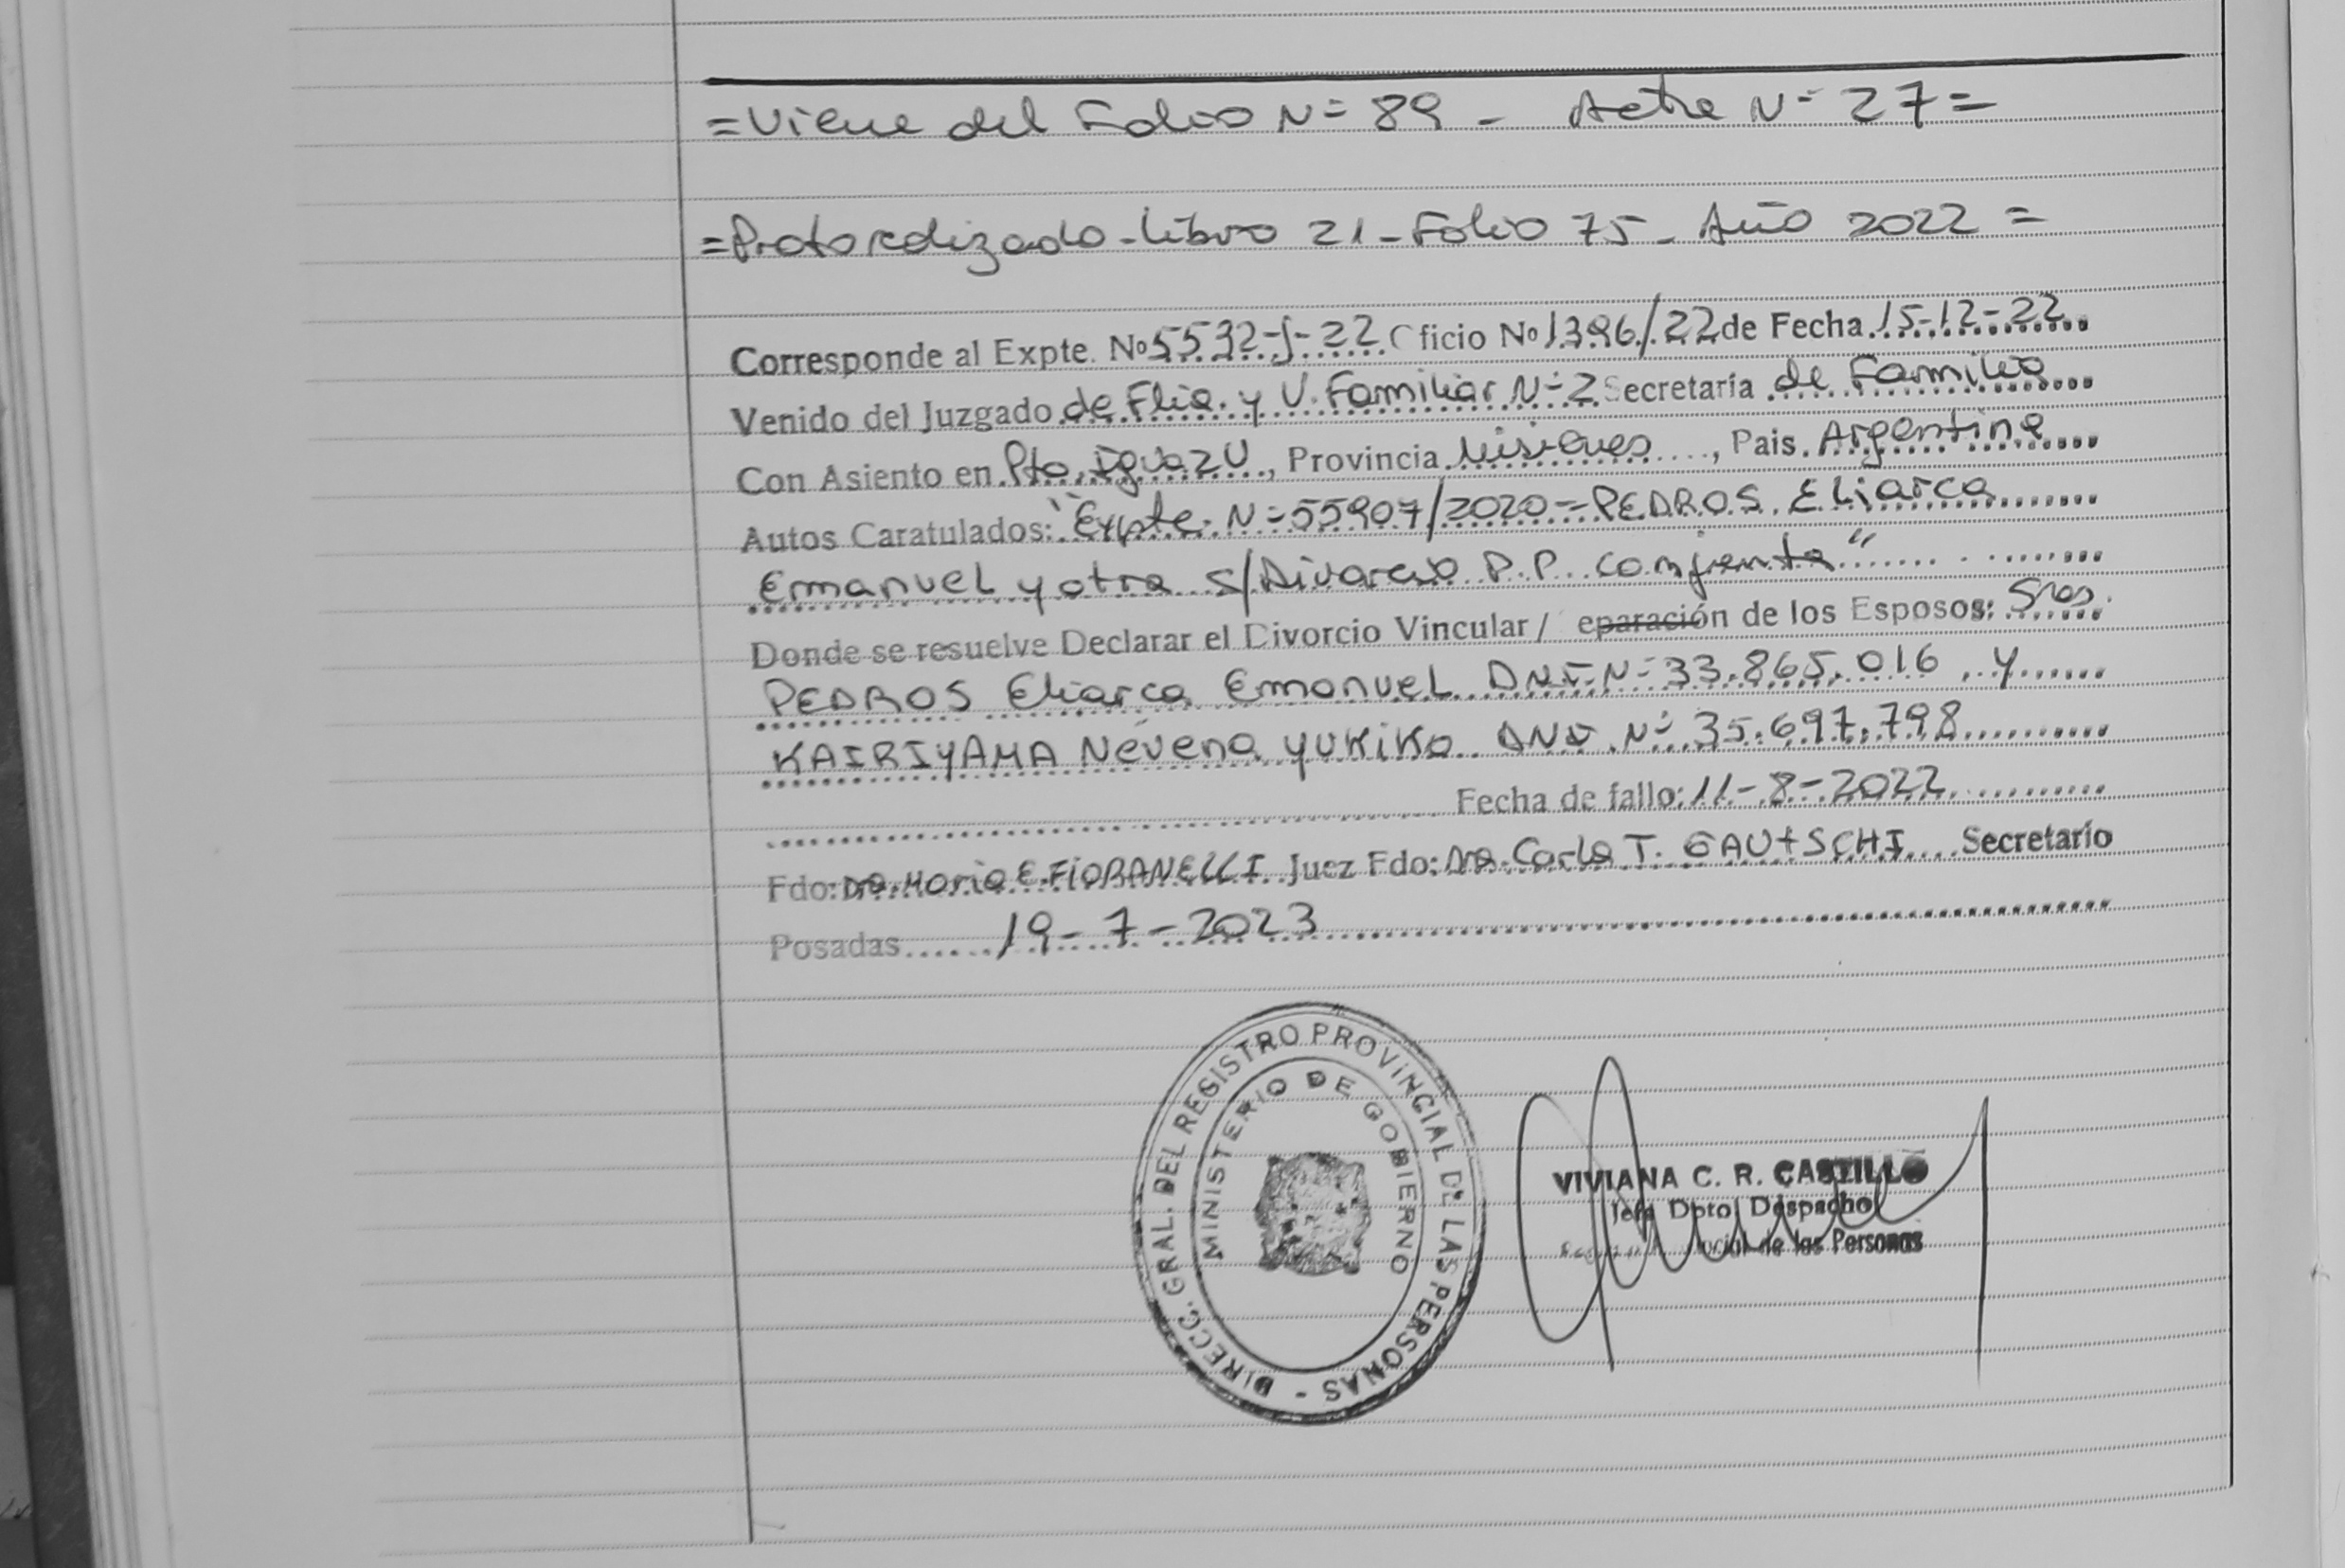 =Viene del Folio N= 89 - Acta N= 27=
=Protocolizado - Libro 21 - Folio 75 - Año 2022 =
Corresponde al Expte. Nº 5532-J-22 Oficio Nº 1396/22 de Fecha 15-12-22
Venido del Juzgado de Flia. y V. Familiar N=2 Secretaría de Familia
Con Asiento en Pto. Iguazu, Provincia Misiones, Pais. Argentina
Autos Caratulados: "Expte. N=55907/2020 - PEDROS Eliarca
Emanuel y otra s/Divorcio P.P. conjunta"
Donde se resuelve Declarar el Divorcio Vincular/ eparación de los Esposos: Sres.
PEDROS Eliarca Emanuel DNI N=33.865.016, y
KAIRIYAMA Nevena YUKIKO DNI N= 35.697.798
Fecha de fallo: 11-8-2022
Fdo: Dra. Maria E. FIORANELLI Juez Fdo: Dra. Carla T. GAUTSCHI Secretario
Posadas 19-7-2023
DIRECC. GRAL. DEL REGISTRO PROVINCIAL DE LAS PERSONAS -
MINISTERIO DE GOBIERNO
VIVIANA C. R. CASTILLO
Jefa Dpto. Despacho
de las Personas